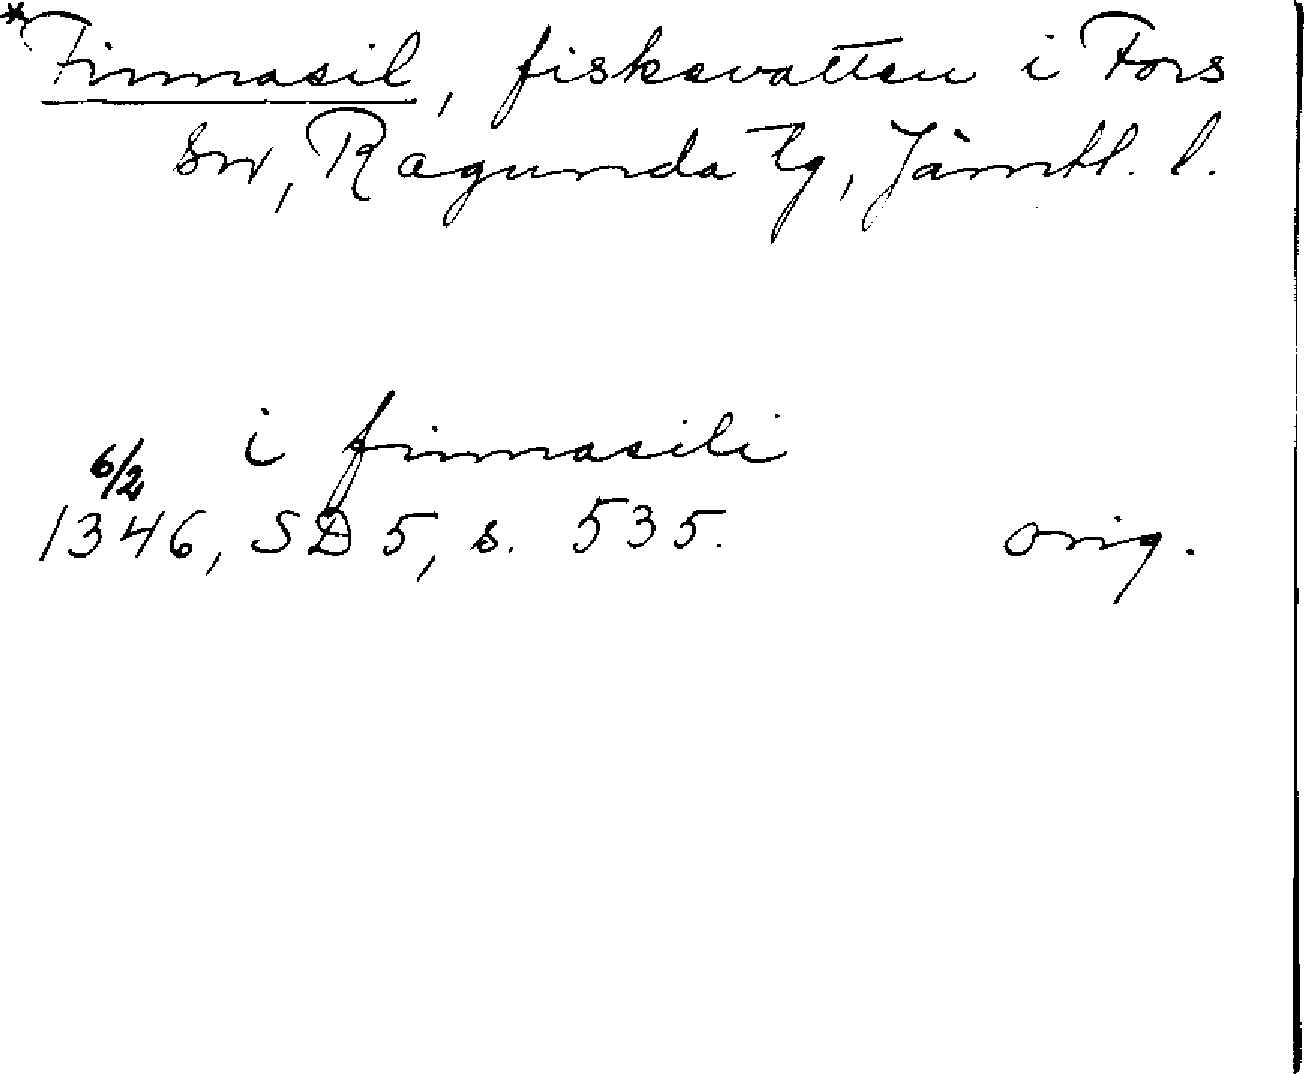 *Finnasil, fiskevatten i Fors
sn, Ragunda tg, Jämtl. l.
i finnasili
6/2
1346, SD 5, s. 535. orig.